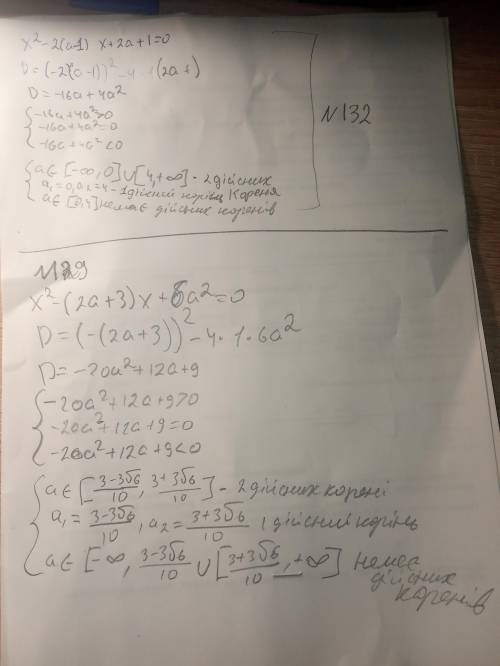 x²-2(a-1) x+2a+1=0
D=(-2(a-1))²-4·1(2a+)
D=-16a+4a²
-16a+4a²>0
-16a+4a²=0
-16a+4a²<0
a∈[-∞,0]∪[4,+∞]- 2 дійсних
a₁=0, a₂=4 - 1 дійсний корінь Кореня
a∈[0,4] немає дійсних коренів
N132
N129
x²-(2a+3)x+6a²=0
D=(-(2a+3))²-4·1·6a²
D=-20a²+12a+9
-20a²+12a+9>0
-20a²+12a+9=0
-20a²+12a+9<0
a∈[(3-3√6)/10, (3+3√6)/10] - 2 дійсних корені
a₁=(3-3√6)/10, a₂=(3+3√6)/10 1 дійсний корінь
a∈[-∞, (3-3√6)/10 ∪ [(3+3√6)/10, +∞] немає
дійсних
коренів